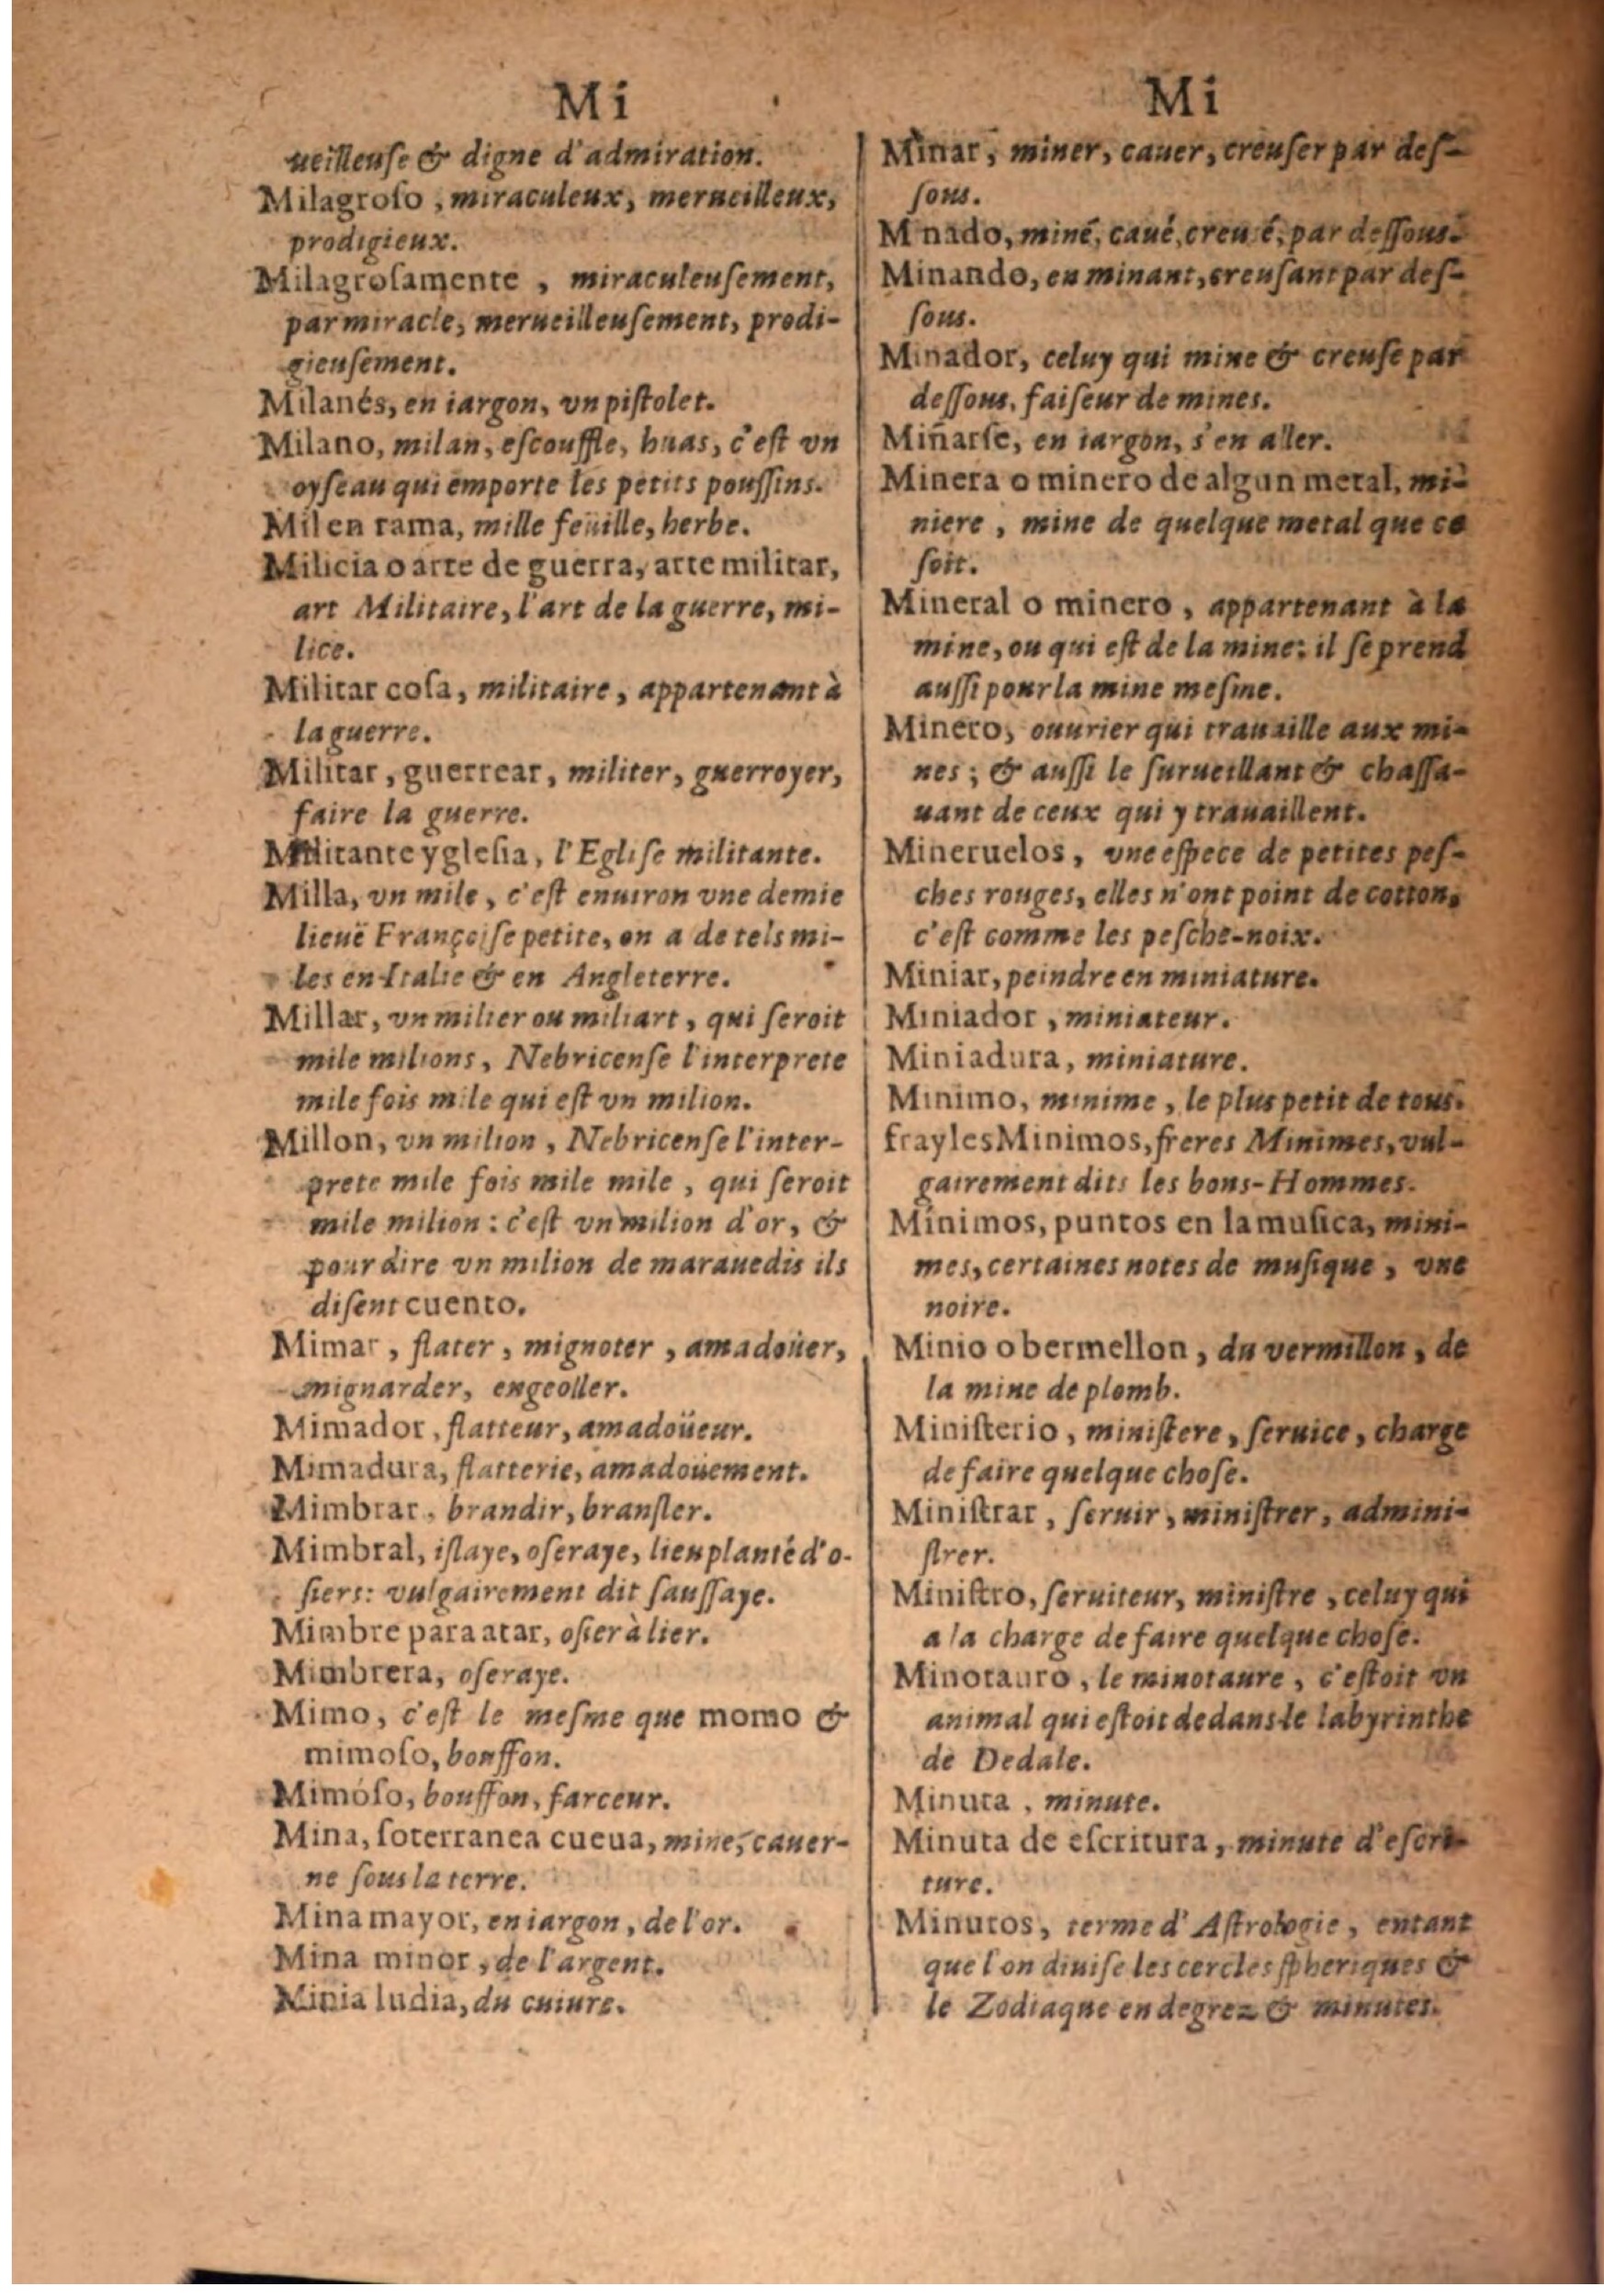 Mi
ueilleuſe & digne d'admiration.
Milagroſo, miraculeux, merueilleux,
prodigieux.
Milagroſamente, miraculeuſement,
par miracle, merueilleuſement, prodi-
gieuſement.
Milanés, en iargon, vn piſtolet.
Milano, milan, eſcouffle, huas, c'eſt vn
oyſeau qui emporte les petits pouſſins.
Mil en rama, mille feüille, herbe.
Milicia o arte de guerra, arte militar,
art Militaire, l'art de la guerre, mi-
lice.
Militar coſa, militaire, appartenant à
la guerre.
Militar, guerrear, militer, guerroyer,
faire la guerre.
Militante ygleſia, l'Egliſe militante.
Milla, vn mile, c'eſt enuiron vne demie
lieuë Françoiſe petite, on a de tels mi-
les en Italie & en Angleterre.
Millar, vn milier ou miliart, qui ſeroit
mile milions, Nebricenſe l'interprete
mile fois mile qui eſt vn milion.
Millon, vn milion, Nebricenſe l'inter-
prete mile fois mile mile, qui ſeroit
mile milion: c'eſt vn milion d'or, &
pour dire vn milion de marauedis ils
diſent cuento.
Mimar, flater, mignoter, amadoüer,
mignarder, engeoller.
Mimador, flatteur, amadoüeur.
Mimadura, flatterie, amadoüement.
Mimbrar, brandir, branſler.
Mimbral, iſlaye, oſeraye, lieu planté d'o-
ſiers: vulgairement dit ſauſſaye.
Mimbre para atar, oſier à lier.
Mimbrera, oſeraye.
Mimo, c'eſt le meſme que momo &
mimoſo, bouffon.
Mimóſo, bouffon, farceur.
Mina, ſoterranea cueua, mine, cauer-
ne ſous la terre.
Mina mayor, en iargon, de l'or.
Mina minor, de l'argent.
Minia ludia, du cuiure.
Mi
Minar, miner, cauer, creuſer par deſ-
ſous.
M nado, miné, caué, creu é, par deſſous.
Minando, en minant, creuſant par deſ-
ſous.
Minador, celuy qui mine & creuſe par
deſſous, faiſeur de mines.
Miñarſe, en iargon, s'en aller.
Minera o minero de algun metal, mi-
niere, mine de quelque metal que ce
ſoit.
Mineral o minero, appartenant à la
mine, ou qui eſt de la mine: il ſe prend
auſſi pour la mine meſme.
Minero, ouurier qui trauaille aux mi-
nes; & auſſi le ſurueillant & chaſſa-
uant de ceux qui y trauaillent.
Mineruelos, vne eſpece de petites peſ-
ches rouges, elles n'ont point de cotton,
c'eſt comme les peſche-noix.
Miniar, peindre en miniature.
Miniador, miniateur.
Miniadura, miniature.
Minimo, minime, le plus petit de tous.
frayles Minimos, freres Minimes, vul-
gairement dits les bons-Hommes.
Mínimos, puntos en la muſica, mini-
mes, certaines notes de muſique, vne
noire.
Minio o bermellon, du vermillon, de
la mine de plomb.
Miniſterio, miniſtere, ſeruice, charge
de faire quelque choſe.
Miniſtrar, ſeruir, miniſtrer, admini-
ſtrer.
Miniſtro, ſeruiteur, miniſtre, celuy qui
a la charge de faire quelque choſe.
Minotauro, le minotaure, c'eſtoit vn
animal qui eſtoit dedans le labyrinthe
de Dedale.
Minuta, minute.
Minuta de eſcritura, minute d'eſcri-
ture.
Minutos, terme d'Aſtrologie, entant
que l'on diuiſe les cercles ſpheriques &
le Zodiaque en degrez & minutes.